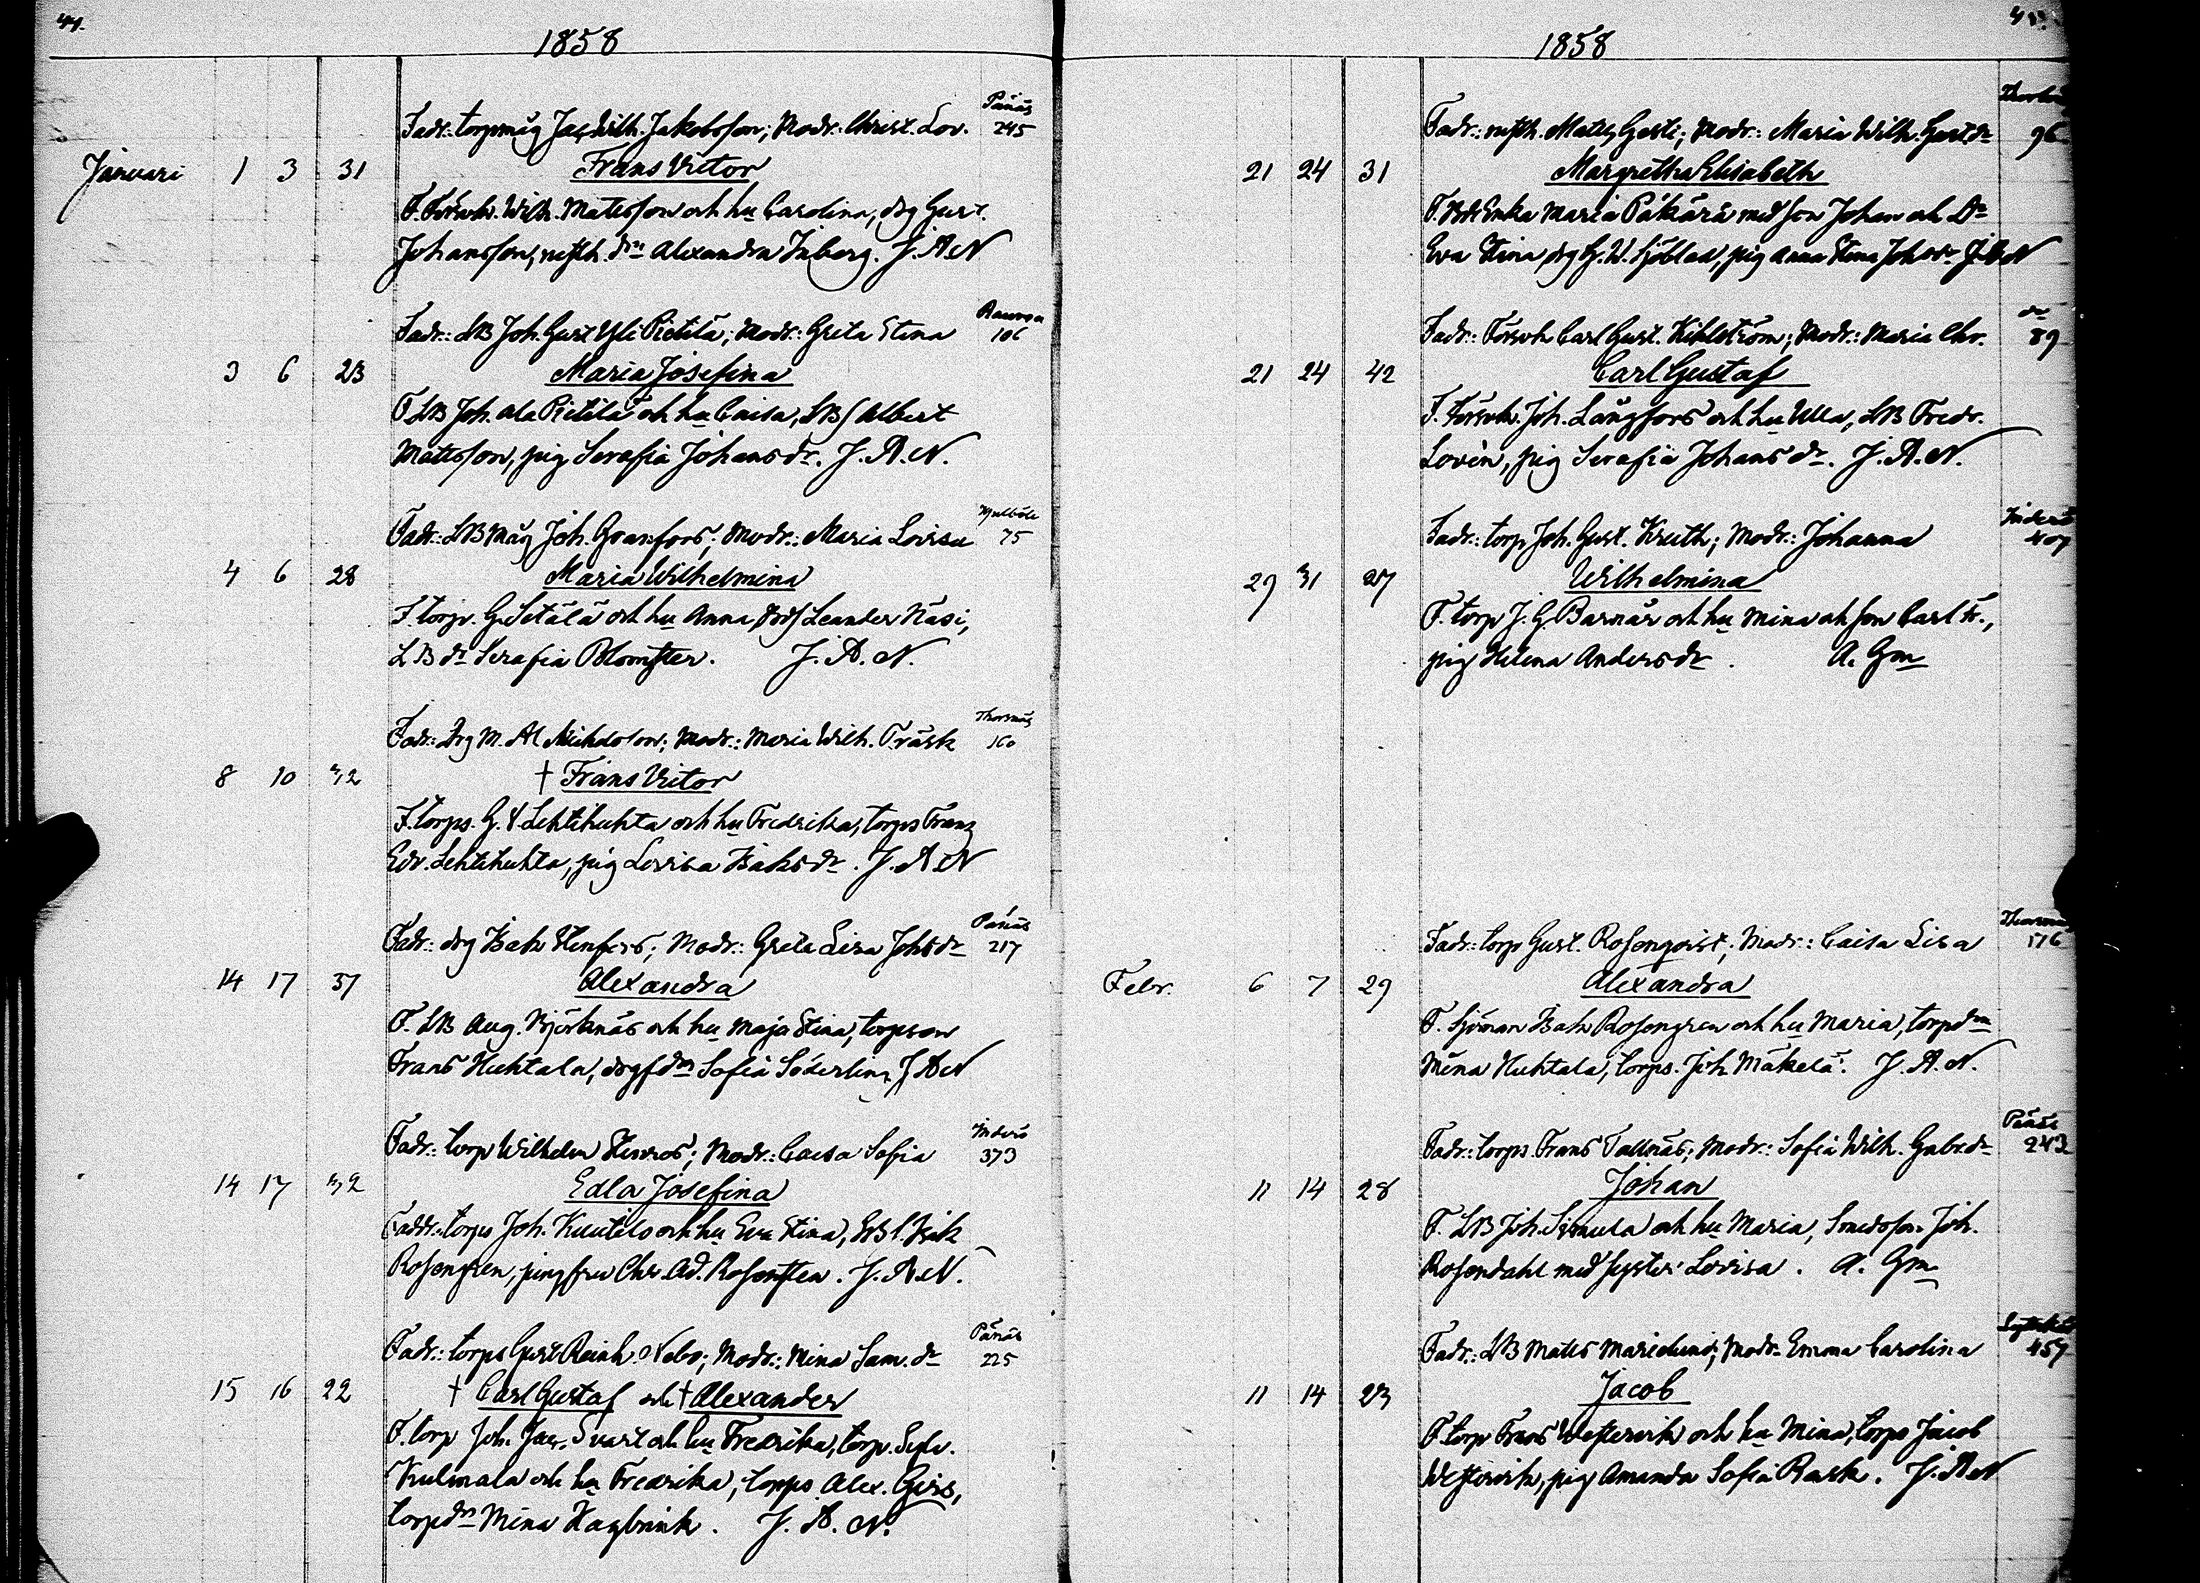 44.
1858
Pänäs
Fadr: torpmåg Jac Wilh. Jakobsson; Modr: Christ. Lov. 245
Januari 1 3 31 Frans Victor
F. Försvk. Wilh. Matsson och hu Carolina, drg Gust.
Johansson, dn Alexandra Inberg. J. A. N
Raumo
Fadr: LB Joh. Gust Yli Pietilä; Modr: Greta Stina 106
3 6 23 Maria Josefina
F. LB Joh. Ala Pietilä och hu Caisa, LBs Albert
Matsson, pig Serafia Johansdr. J. A. N.
Fadr: LB måg Joh. Granfors; Modr: Maria Lovisa 75
4 6 28 Maria Wilhelmina
F. torp. G. Setälä och hu Anna, Leander Näsi,
LB dr Serafia Blomster. J. A. N.
Thorsnäs
Fadr: Drg M. Al Mickelsson; Modr: Maria Wilh. Träsk 160
8 10 32 † Frans Victor
F. torps. G. Lehtihuhta och hu Fredrika, torps Franz
Edv. Lehtihuhta, pig Lovisa Isaksdr. J. A. N
Pänäs
Fadr: drg Isak Henfors; Modr: Greta Lisa Johsdr 217
14 17 37 Alexandra
F. LB Aug. Björknäs och hu Maja Stina, torpson
Frans Huhtala, drgsdn Sofia Söderling J A N
Inderö
Fadr: torp Wilhelm Henros; Modr: Caisa Sofia 373
14 17 32 Edla Josefina
Faddr: torps Joh. Knutils och hu Eva Stina, Isak
Rosengren, jungfru Chr. Ad. Rosensten. J. A. N.
Pänäs
Fadr: torps Gust Reinh. Nebo; Modr: Mina Sam.dr 225
15 16 22 † Carl Gustaf och † Alexander
F. torp Joh. Jac. Svart och hu Fredrika, torp. Sylv.
Kulmala och hu Fredrika, torps Alex. Girs,
torpdn Mina Hagbrink. J. A. N.
1858
Fadr: Matts Gerti; Modr: Maria Wilh. Gustdr 96
21 24 31 Margretha Elisabeth
F. Enka Maria Päkärä med son Johan och Dr
Eva Stina, drg G. W. Sjöblad, pig Anna Stina Johsdr J A N
dr
Fadr: Försvk Carl Gust. Kihlström; Modr: Maria Chr. 89
21 24 42 Carl Gustaf
F. Försvk. Joh. Långfors och hu Ulla, LB Fredr.
Lovén, pig Serafia Johansdr. J. A. N.
Inderö
Fadr: torp Joh. Gust. Kruth; Modr: Johanna 407
29 31 27 Wilhelmina
F. torp J. G. Barnäs och hu Mina och son Carl Fr.,
pig Helena Andersdr. A. Gm
Fadr: torp Gust. Rosenqvist; Modr: Caisa Lisa 176
Febr. 6 7 29 Alexandra
F. Sjöman Isak Rosengren och hu Maria, torpdn
Mina Huhtala, torps. Joh Mäkelä. J. A. N.
Pänäs
Fadr: torps. Frans Tallnäs; Modr: Sofia Wilh. Gabrdr 243
11 14 28 Johan
F. LB Joh. Simula och hu Maria, Smedsson Joh.
Rosendahl med syster Lovisa. A. Gm
Fadr: LB Matts Marielund; Modr Emma Carolina 457
11 14 23 Jacob
F. torp Frans Westervik och hu Mina, torps Jacob
Westervik, pig Amanda Sofia Rask. J. A N